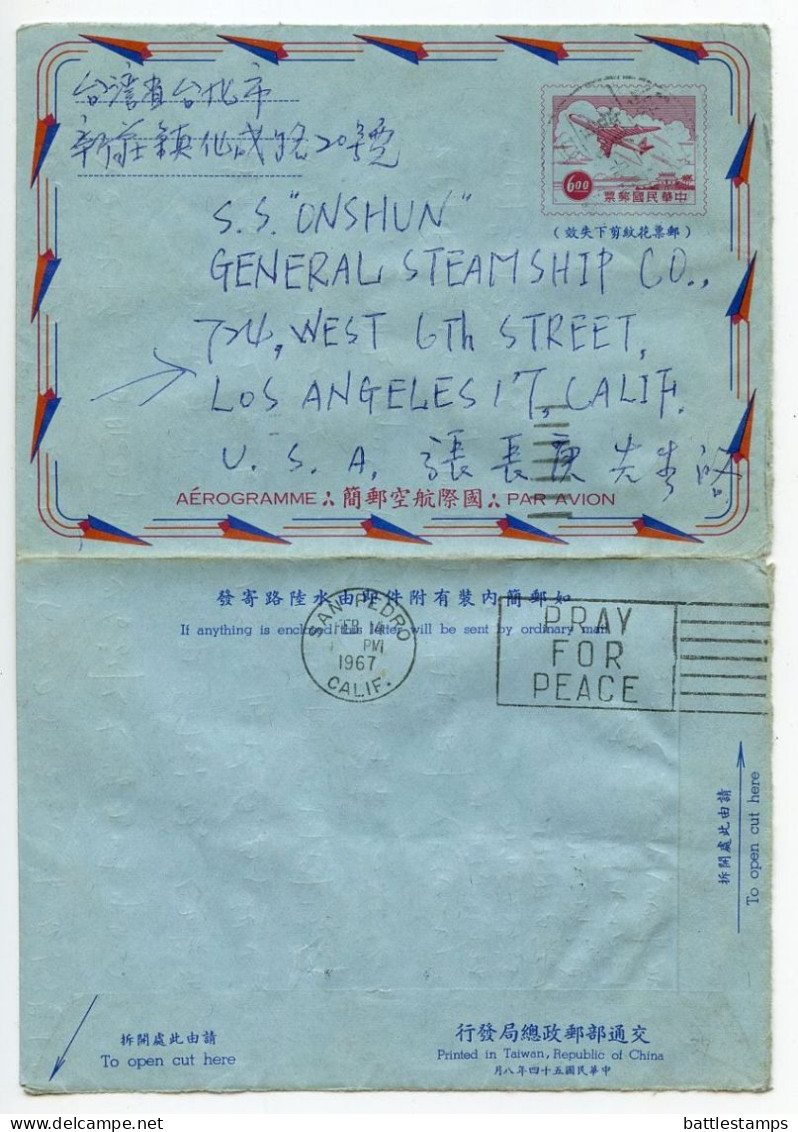 台灣省台北市
新莊鎮化成路20號
6.00
票郵國民華中
（效失下剪紋花票郵）
S.S. "ONSHUN"
GENERAL STEAMSHIP CO.,
724, WEST 6Th STREET,
LOS ANGELES 17, CALIF.
U. S. A, 張長庚先生啓
AÉROGRAMME 簡郵空航際國 PAR AVION
發寄路陸水由即件附有裝內簡郵如
If anything is enclosed this letter will be sent by ordinary mail
SAN PEDRO
FEB 14
PM
1967
CALIF.
PRAY
FOR
PEACE
拆開處此由請
To open cut here
拆開處此由請
To open cut here
行發局總政郵部通交
Printed in Taiwan, Republic of China
月八年四十五國民華中
battlestamps